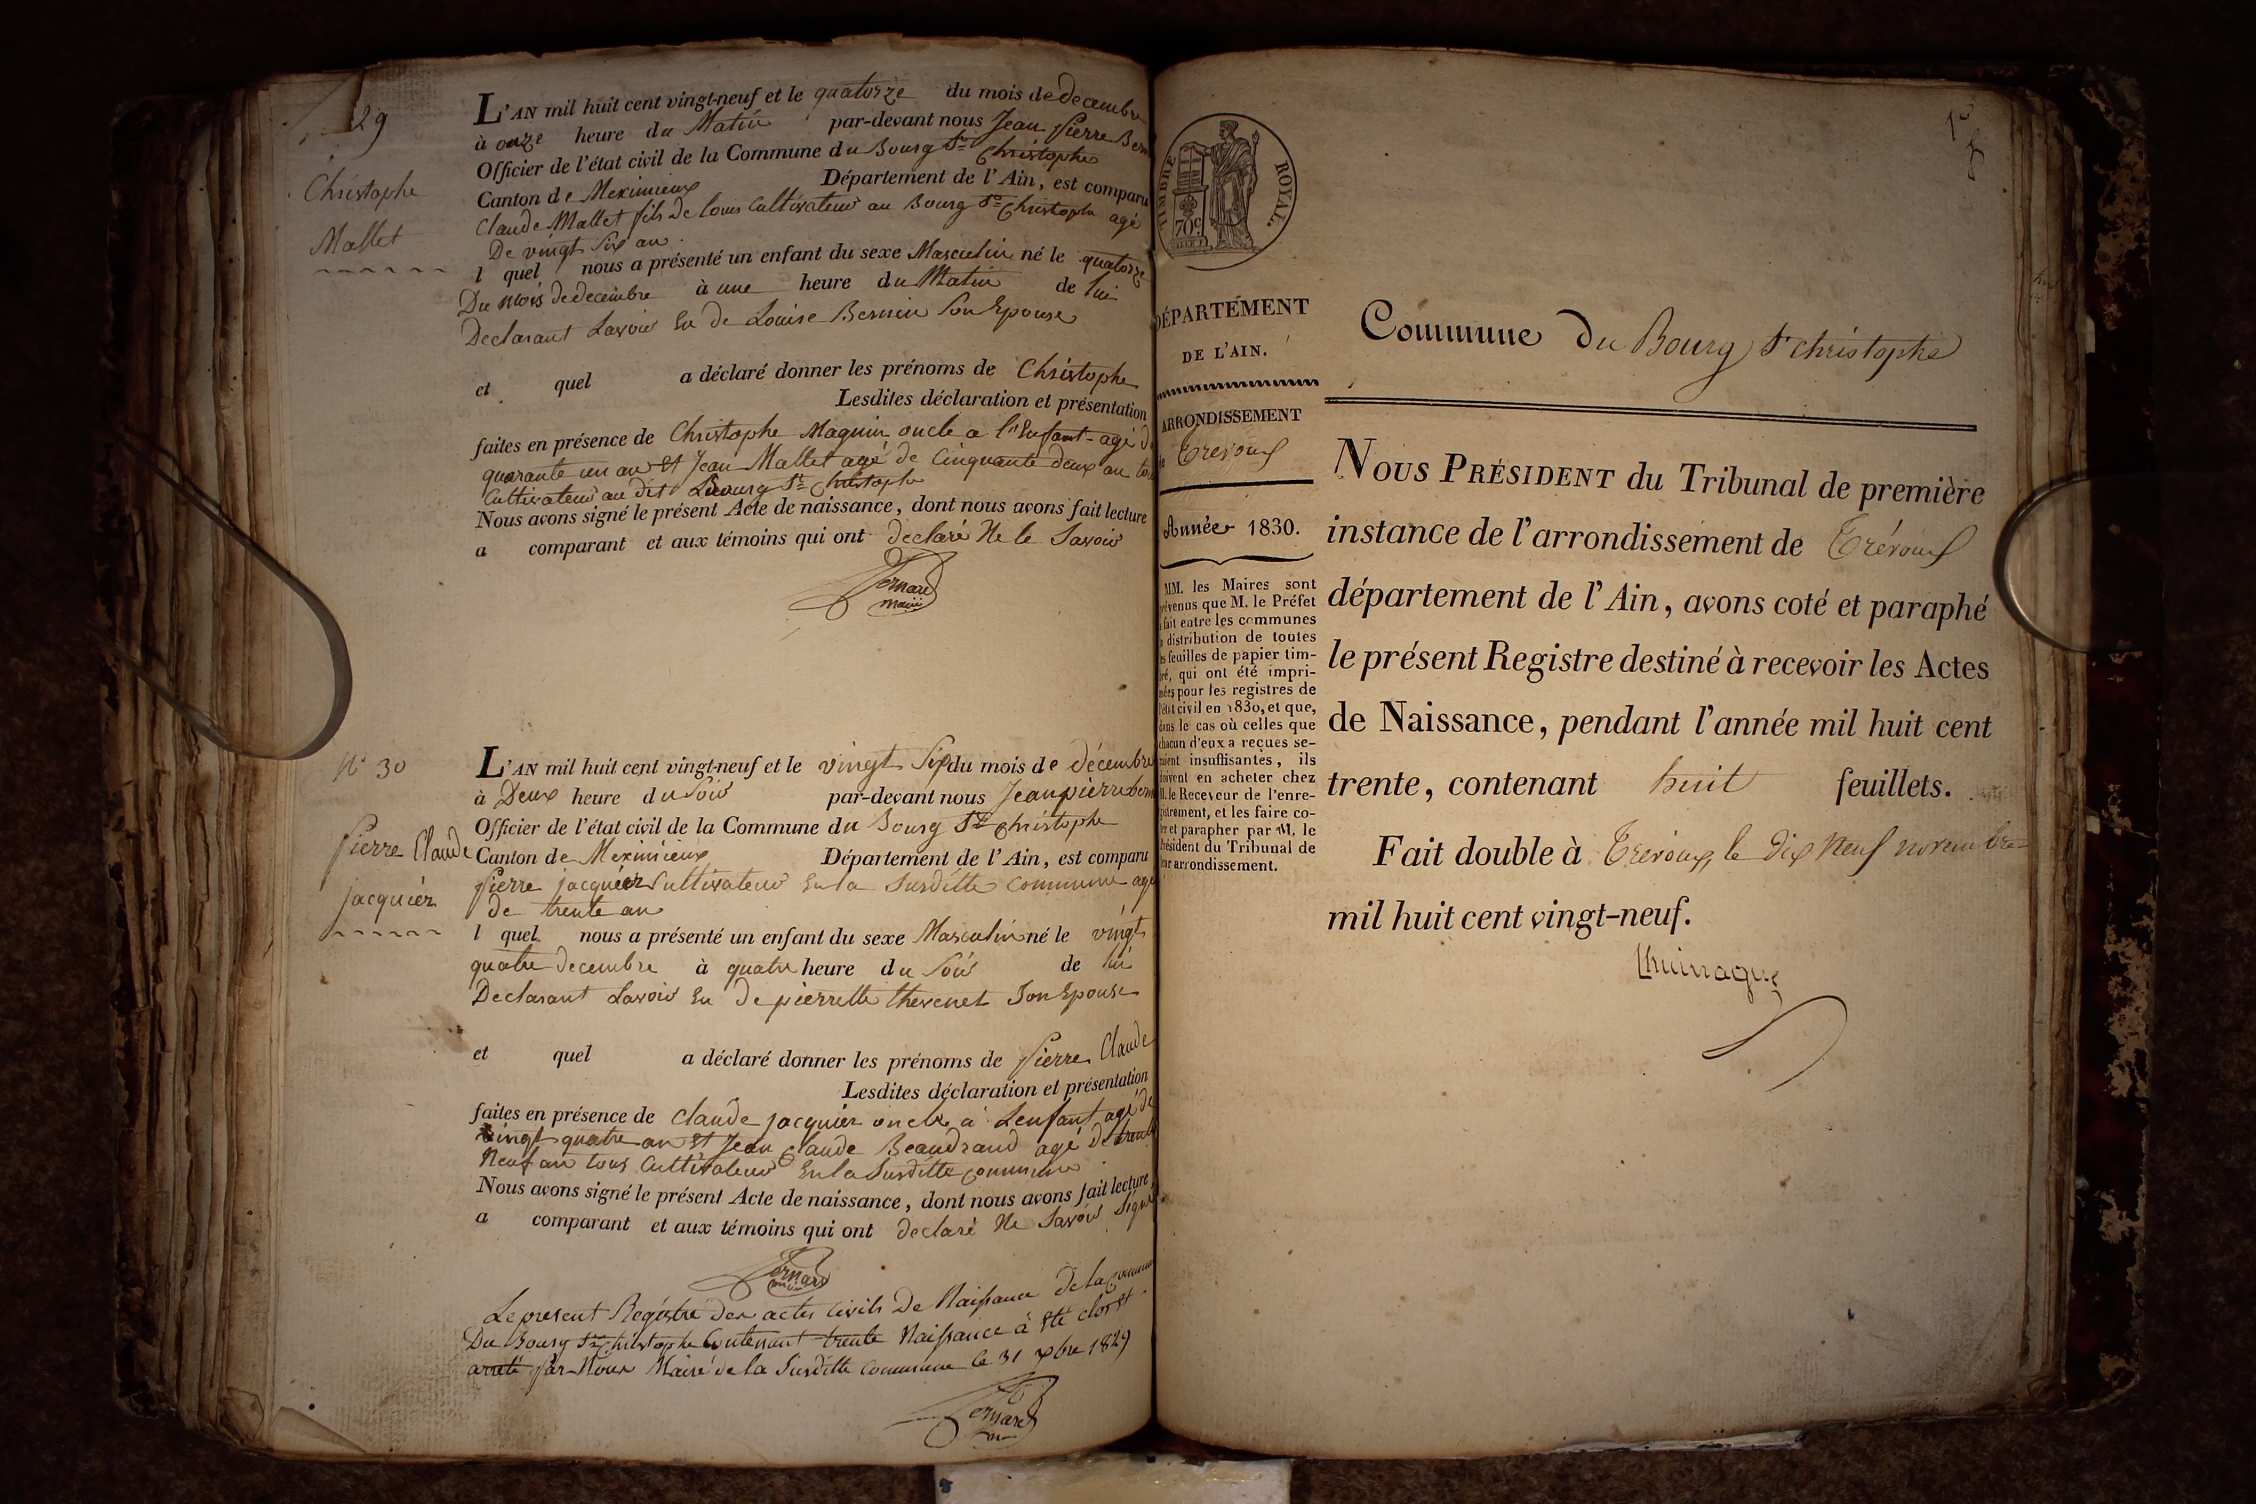 29
Christophe
Mallet
L'AN mil huit cent vingt-neuf et le quatorze du mois de decembre
à onze heure du Matin par-devant nous Jean Pierre
Officier de l'état civil de la Commune du Bourg St Christophe
Canton de Meximieux Département de l'Ain, est comparu
Claude Mallet fils de louis Cultivateur au Bourg St Christophe agé
De vingt Six an
l quel nous a présenté un enfant du sexe Masculin né le quatorze
Du mois de decembre à une heure du Matin de lui
Declarant Savoir Eu de Louise Bernin Son Epouse
et quel a déclaré donner les prénoms de Christophe
Lesdites déclaration et présentation
faites en présence de Christophe Maguin oncle a l'Enfant agé de
quarante un an et Jean Mallet agé de Cinquante deux an
Cultivateur au dit Bourg St Christophe
Nous avons signé le présent Acte de naissance, dont nous avons fait lecture
a comparant et aux témoins qui ont declaré Ne le Savoir
Bernard
maire
No 30
Pierre Claude
jacquier
L'AN mil huit cent vingt-neuf et le vingt Six du mois de décembre
à Deux heure du Soir par-devant nous Jean pierre
Officier de l'état civil de la Commune du Bourg St Christophe
Canton de Meximieux Département de l'Ain, est comparu
Pierre jacquier Cultivateur En la Susditte commune agé
de trente an
l quel nous a présenté un enfant du sexe Masculin né le vingt
quatre decembre à quatre heure du Soir de lui
Declarant Savoir Eu de pierrette thevenet Son Epouse
et quel a déclaré donner les prénoms de Pierre Claude
Lesdites déclaration et présentation
faites en présence de Claude jacquier oncle a L'enfant agé de
vingt quatre an et Jean Claude Beaudrand agé de trente
Neuf an tous Cultivateur En la Susditte commune
Nous avons signé le présent Acte de naissance, dont nous avons fait lecture
a comparant et aux témoins qui ont declaré Ne Savoir Signé
Bernard
maire
Le present Registre des actes Civils De Naissance De la commune
Du Bourg St Christophe Contenant trente Naissance à Eté clos et
arreté par Nous Maire de la Susditte commune le 31 xbre 1829
Bernard
TIMBRE ROYAL.
70c
DÉPARTEMENT
DE L'AIN.
ARRONDISSEMENT
de Trevoux
Année 1830.
MM. les Maires sont
prévenus que M. le Préfet
a fait entre les communes
la distribution de toutes
les feuilles de papier tim-
bré, qui ont été impri-
mées pour les registres de
l'état civil en 1830, et que,
dans le cas où celles que
chacun d'eux a reçues se-
raient insuffisantes, ils
doivent en acheter chez
M. le Receveur de l'enre-
gistrement, et les faire co-
ter et parapher par M. le
Président du Tribunal de
leur arrondissement.
Commune du Bourg St Christophe
NOUS PRÉSIDENT du Tribunal de première
instance de l'arrondissement de Trévoux
département de l'Ain, avons coté et paraphé
le présent Registre destiné à recevoir les Actes
de Naissance, pendant l'année mil huit cent
trente, contenant huit feuillets.
Fait double à Trevoux, le dix Neuf novembre
mil huit cent vingt-neuf.